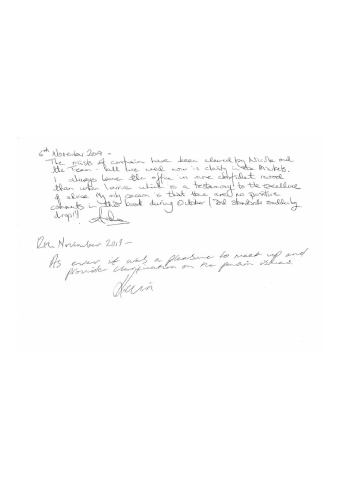 6th November 2019 -
The mists of confusion have been cleared by Nicola and
the Team - all we need now is clarity in the Markets.
I always leave the office in more confident mood
than when I arrive which is a testimony to the excellence
of advice. My only concern is that there are no positive
comments in this book during October! Did standards suddenly
drop!?
November 2019 -
As ever it was a pleasure to meet up and
provide clarification on the pension issues.
Kevin